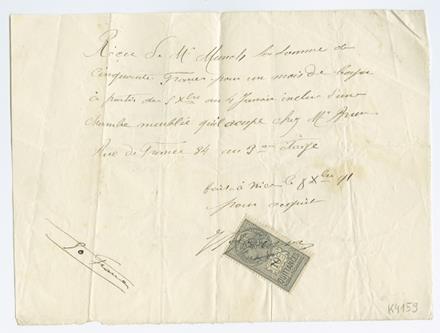 Reçu de Mr Munch la somme de
cinquante Francs pour un mois de loyer
à partir du 5 Xbre au 4 Janvier inclus d'une
chambre meublée qu'il occupe chez Mr
Rue de France 84 au 3me étage
fait à Nice le 5 Xbre 91
pour acquit
50 Francs
QUITTANCES
K4159